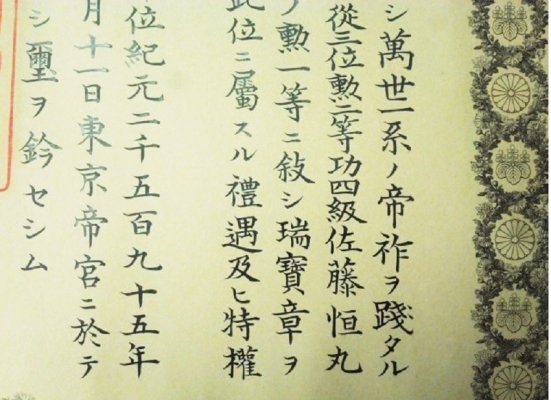 シ萬世一系ノ帝祚ヲ踐タル
從三位勲二等功四級佐藤恒丸
ノ勲一等ニ敍シ瑞寶章ヲ
此位ニ屬スル禮遇及ヒ特權
位紀元二千五百九十五年
月十一日東京帝宮ニ於テ
シ璽ヲ鈐セシム